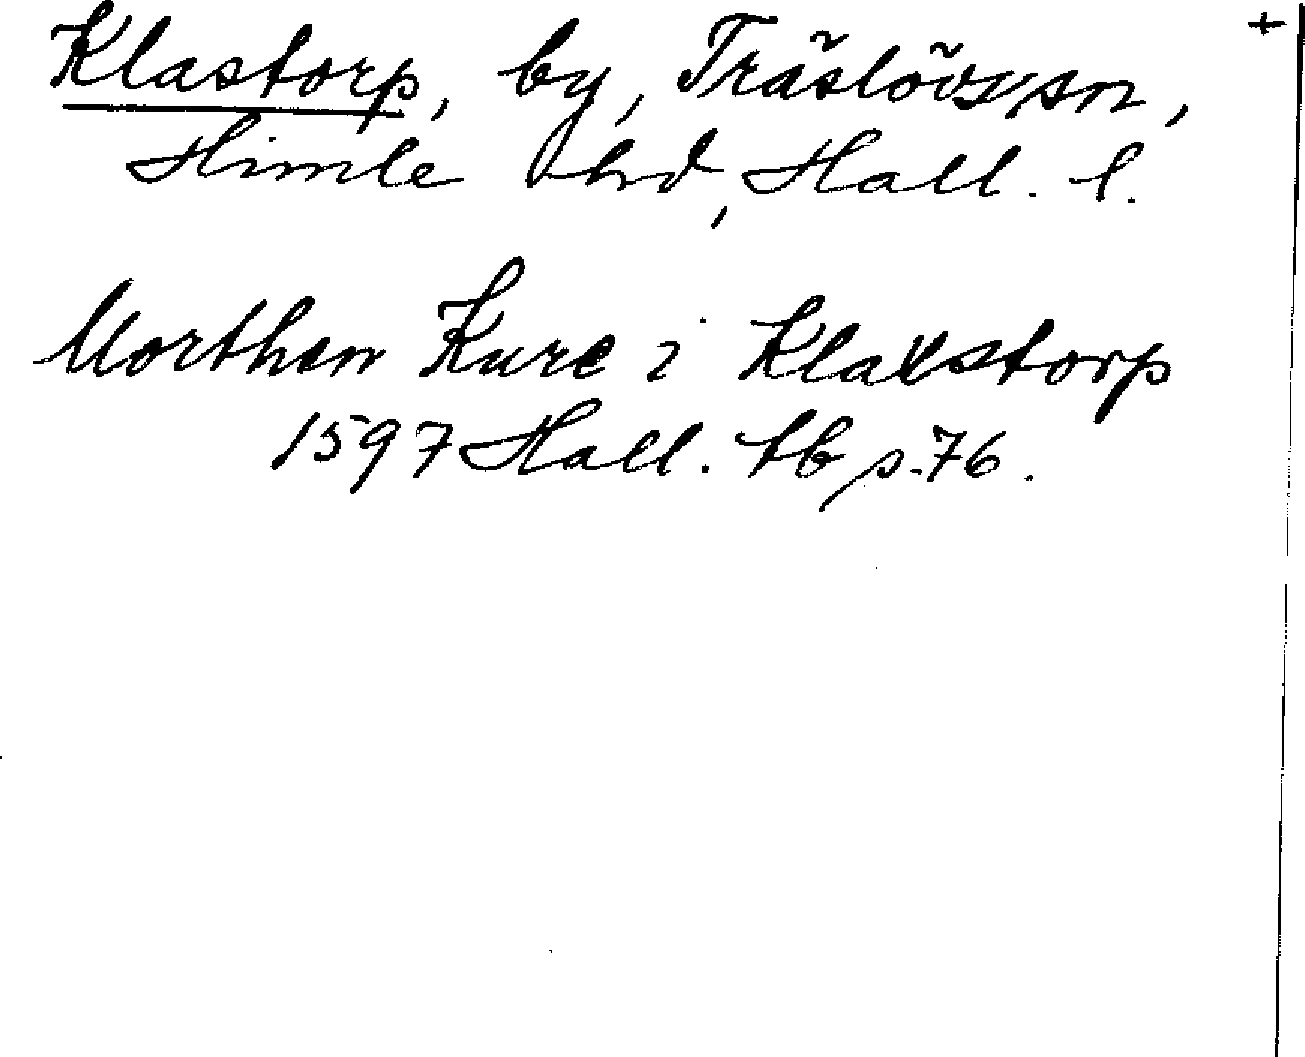 +
Klastorp, by, Träslövs sn,
Himle hd, Hall. l.
Morthen Kure i Klaxstorp
1597 Hall. tb p. 76.